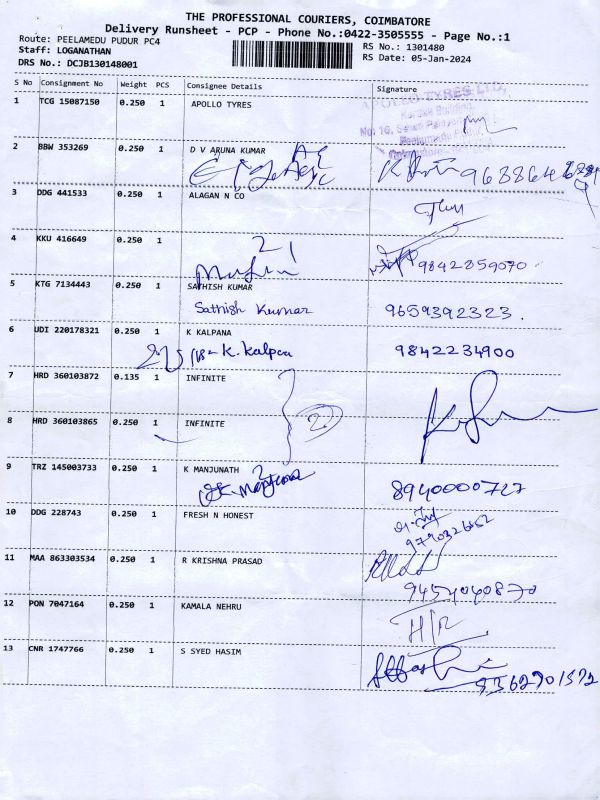 THE PROFESSIONAL COURIERS, COIMBATORE
Delivery Runsheet - PCP - Phone No.:0422-3505555 - Page No.:1
Route: PEELAMEDU PUDUR PC4
RS No.: 1301480
Staff: LOGANATHAN
RS Date: 05-Jan-2024
DRS No.: DCJB130148001
S No Consignment No Weight PCS Consignee Details Signature
1 TCG 15087150 0.250 1 APOLLO TYRES
APOLLO TYRES LTD,
2 BBW 353269 0.250 1 D V ARUNA KUMAR
3 DDG 441533 0.250 1 ALAGAN N CO
4 KKU 416649 0.250 1
9842859070
5 KTG 7134443 0.250 1 SATHISH KUMAR
Sathish Kumar 9659392323.
6 UDI 220178321 0.250 1 K KALPANA
K. Kalpana 9842234900
7 HRD 360103872 0.135 1 INFINITE
2
8 HRD 360103865 0.250 1 INFINITE
9 TRZ 145003733 0.250 1 K MANJUNATH
8940000727
10 DDG 228743 0.250 1 FRESH N HONEST
11 MAA 863303534 0.250 1 R KRISHNA PRASAD
9454040870
12 PON 7047164 0.250 1 KAMALA NEHRU
H/R
13 CNR 1747766 0.250 1 S SYED HASIM
9362701572